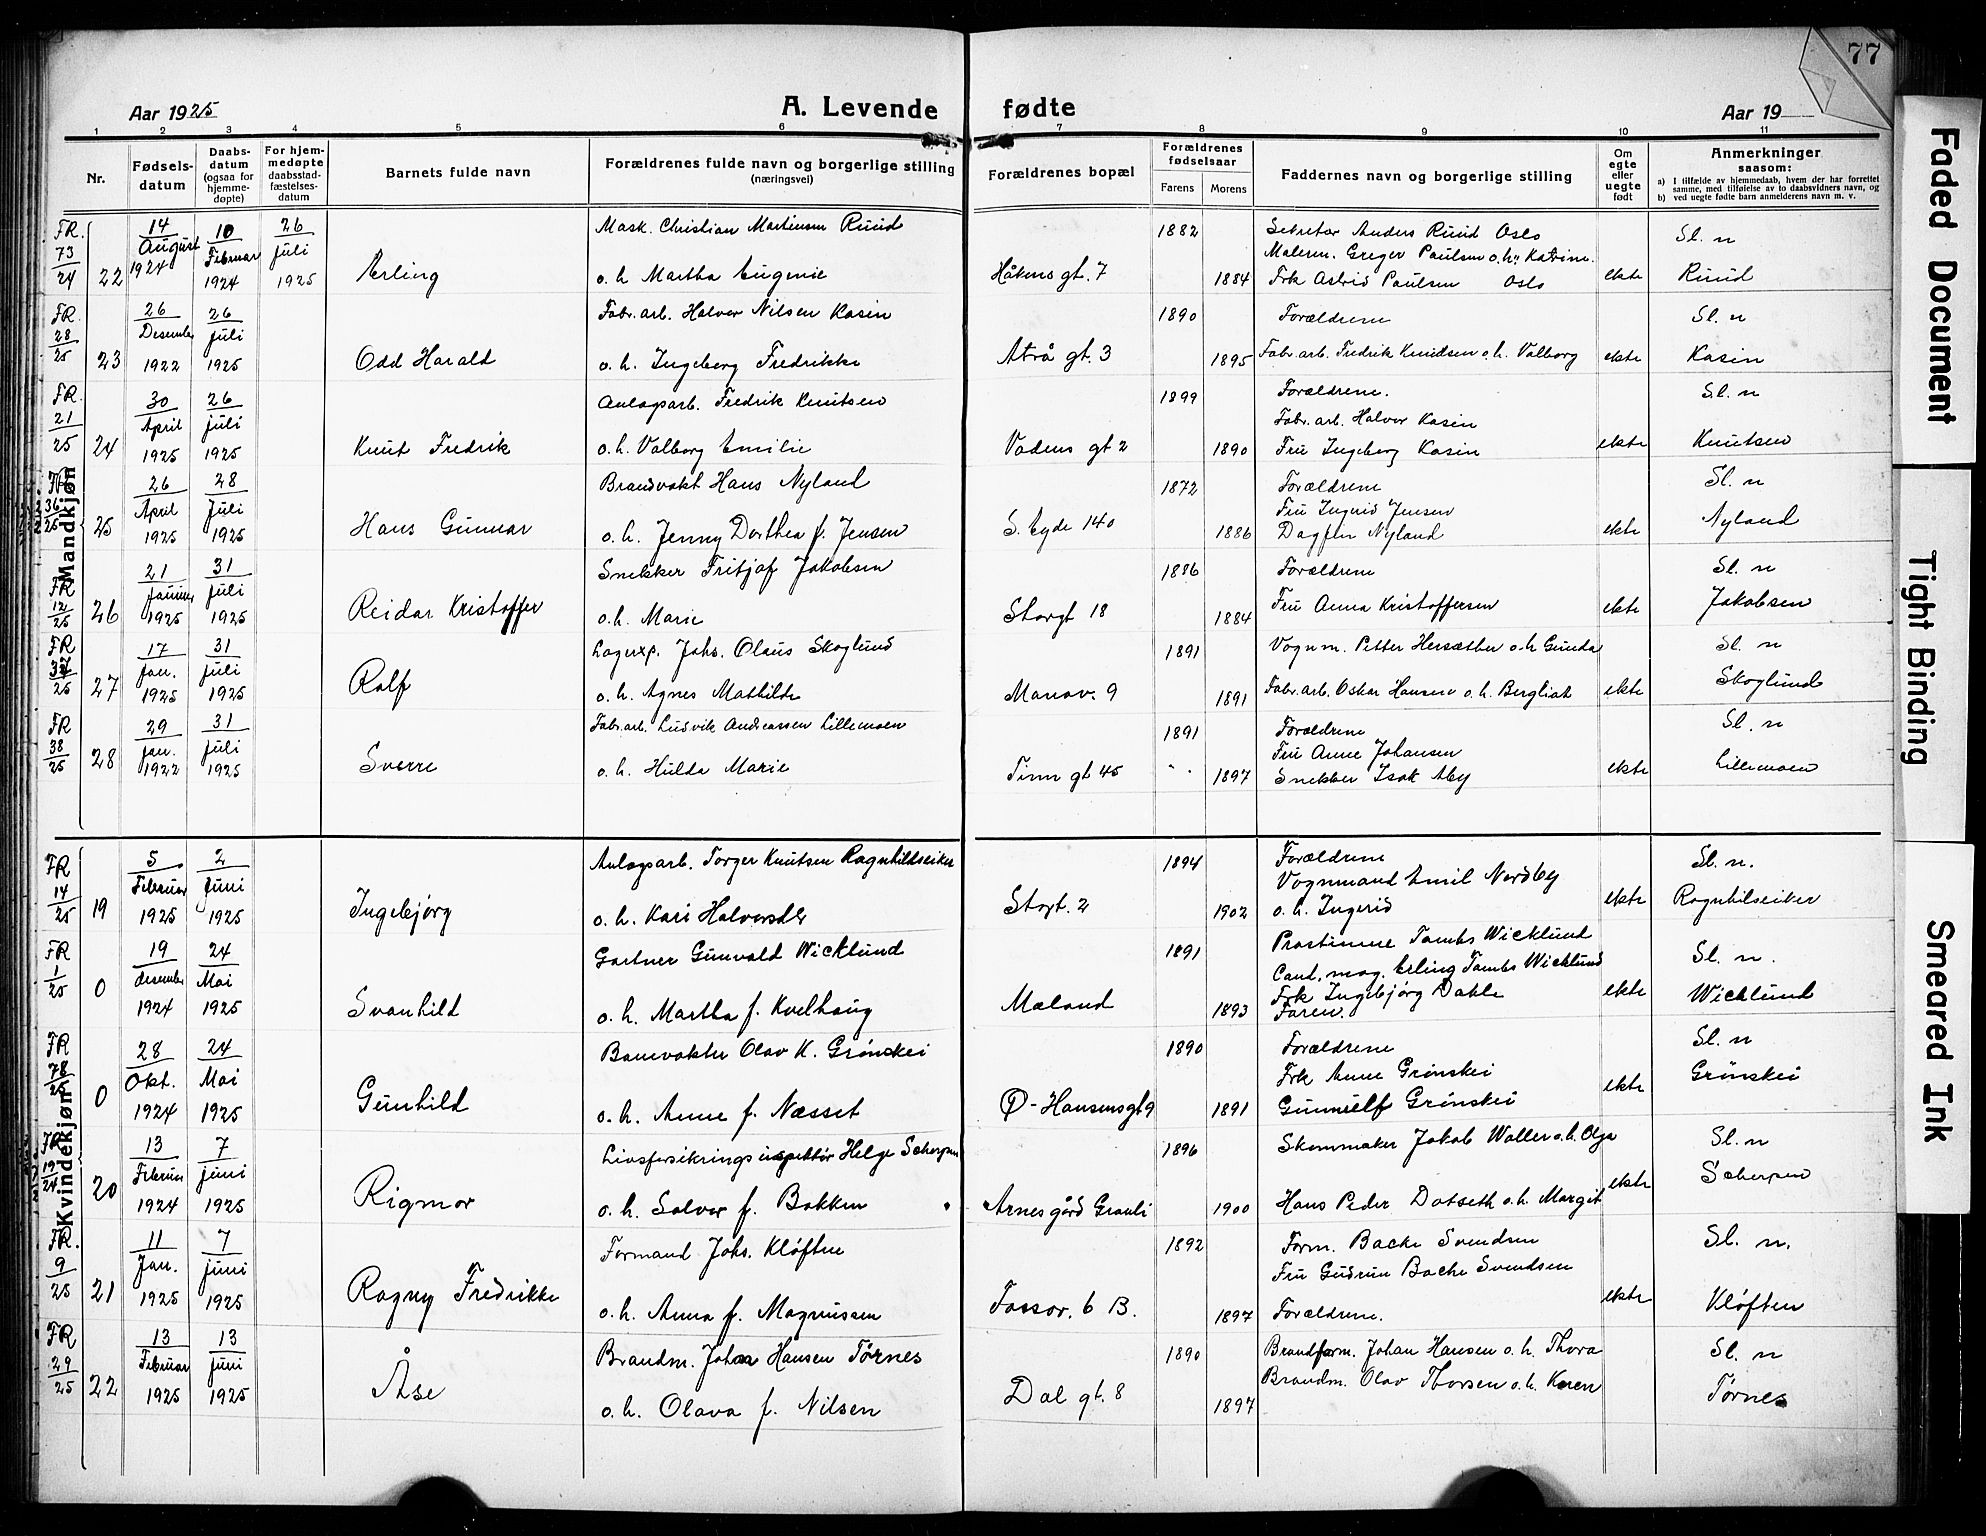 77
Aar 1925
A. Levende fødte
Aar 19
1 2 3 4 5 6 7 8 9 10 11
Nr.
Fødsels-
datum
Daabs-
datum
(ogsaa for
hjemme-
døpte)
For hjem-
medøpte
daabsstad-
fæstelses-
datum
Barnets fulde navn
Forældrenes fulde navn og borgerlige stilling
(næringsvei)
Forældrenes bopæl
Forældrenes
fødselsaar
Farens Morens
Faddernes navn og borgerlige stilling
Om
egte
eller
uegte
født
Anmerkninger
saasom:
a) I tilfælde av hjemmedaab, hvem der har forrettet
samme, med tilføielse av to daabsvidners navn, og
b) ved uegte fødte barn anmelderens navn m. v.
Mandkjøn
FR. 14 10 26 Mask. Christian Martinsen Ruud 1882 Sekretær Anders Ruud Oslo Sl. n
73 August Februar Juli Malerm. Greger Paulsen o.h. Katrine.
24 22 1924 1924 1925 Erling o. h. Martha Eugenie Håkens gt. 7 1884 Frk Astrid Paulsen Oslo ekte Ruud
FR. 26 26 Fabr. arb. Halvor Nilsen Kasin 1890 Forældrene Sl. n
28 Desember Juli
25 23 1922 1925 Odd Harald o. h. Ingeborg Fredrikke Atrå gt. 3 1895 Fabr. arb. Fredrik Knudsen o.h. Valborg ekte Kasin
FR. 30 26 Anlagsarb. Fredrik Knutsen 1899 Forældrene. Sl. n
21 April Juli Fabr. arb. Halvor Kasin
25 24 1925 1925 Knut Fredrik o. h. Valborg Emilie Vadens gt 2 1890 Fru Ingeborg Kasin ekte Knutsen
26 28 Brandvakt Hans Nyland 1872 Forældrene Sl. n
36 April Juli Fru Ingrid Jensen
25 25 1925 1925 Hans Gunnar o. h. Jenny Dorthea f. Jensen S. Eyde 140 1886 Dagfin Nyland ekte Nyland
FR 21 31 Snekker Fritjof Jakobsen 1886 Forældrene Sl. n
12 Januar Juli
25 26 1925 1925 Reidar Kristoffer o. h. Marie Storgt 18 1884 Fru Anna Kristoffersen ekte Jakobsen
FR 17 31 Lagerxp. Johs. Olaus Skoglund 1891 Vognm. Petter Hersæther o.h Gunda Sl. n
37 Jan. Juli
25 27 1925 1925 Rolf o. h. Agnes Mathilde Manav. 9 1891 Fabr. arb. Oskar Hansen o. h. Bergliot ekte Skoglund
FR 29 31 Fabr. arb. Ludvik Andreassen Lillemoen 1891 Forældrene Sl. n
38 Jan. Juli Fru Anne Johansen
25 28 1922 1925 Sverre o. h. Hulda Marie Tinn gt 45 1897 Snekker Isak Aby ekte Lillemoen
Kvindekjøn
FR 5 2 Anlagsarb. Torger Knutsen Ragnhildseiker 1894 Forældrene Sl. n.
14 Februar Juni Vognmand Emil Nordby
25 19 1925 1925 Ingebjørg o. h. Kari Halvorsdtr Storgt. 2 1902 o. h. Ingerid ekte Ragnhilseiker
FR 19 24 Gartner Gunvald Wicklund 1891 Prestinne Tambs Wicklund Sl. n.
1 desember Mai Cand. mag. Erling Tambs Wicklund
25 0 1924 1925 Svanhild o. h. Martha f. Kvelhaug Mæland 1893 Frk Ingebjørg Dahle ekte Wicklund
Faren.
FR 28 24 Banevokter Olav K. Grønskei 1890 Forældrene Sl. n
78 Okt. Mai Frk Anne Grønskei
25 0 1924 1925 Gunhild o. h. Anne f. Næsset Ø-Hansensgt 9 1891 Gunnulf Grønskei ekte Grönskei
FR 13 7 Livsforsikrings inspektør Helge Scherpen 1896 Skommaker Jakob Waller o.h. Olga Sl. n
19 Februar Juni
24 20 1924 1925 Rigmor o. h. Solver f. Bakken Arnesgård Grauli 1900 Hans Peder Datseth o. h. Margit ekte Scherpen
FR. 11 7 Formand Johs. Kløften 1892 Form. Backe Svendsen Sl. n.
9 Jan. Juni Fru Gudrun Backe Svendsen
25 21 1925 1925 Ragny Fredrikke o. h. Anna f. Magnussen Fossov. 6 B. 1897 Forældrene. ekte Kløften
FR 13 13 Brandm. Johan Hansen Tørnes 1890 Brandform. Johan Hansen o. h. Thora Sl. n
29 Februar Juni Brandm. Olav Thorsen o. h. Karen
25 22 1925 1925 Åse o. h. Olava f. Nilsen Dal gt. 8 1897 Tørnes
Faded Document
Tight Binding
Smeared Ink